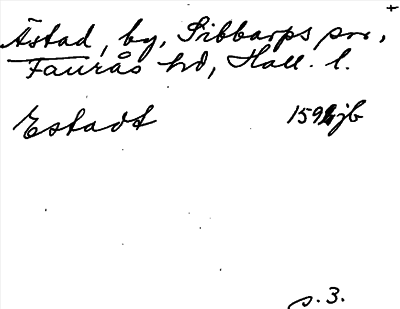 Ästad, by, Sibbarps sn,
Faurås hd, Hall. l.
Estadt 1592 jb
s. 3.